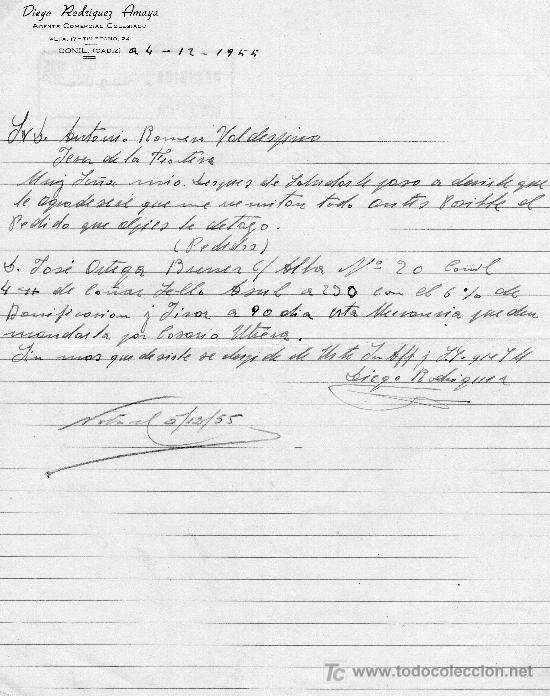 Diego Rodriguez Amaya
AGENTE COMERCIAL COLEGIADO
ALTA, 17 - TELEFONO, 24
CONIL (CADIZ) a 4 - 12 - 1955
Sr D. Antonio Romero Valdespino
Jerez de la Frontera
Muy Señor mio. Despues de Saludarle paso a decirle que
le agradeceré que me remitan todo antes Posible el
Pedido que al pies le detayo.
(Pedidos)
D. José Ortega Brenes C/ Alta Nº 20 Conil
4 de Coñac Sello Asul a 290 con el 6% de
Bonificasion y Jirar a 90 dia esta Mercancia pueden
mandarla por Cosario Utrera.
Sin mas que desirle se despide de Uste Su Aff y S.S. que
Diego Rodriguez
5/12/55
TC www.todocoleccion.net